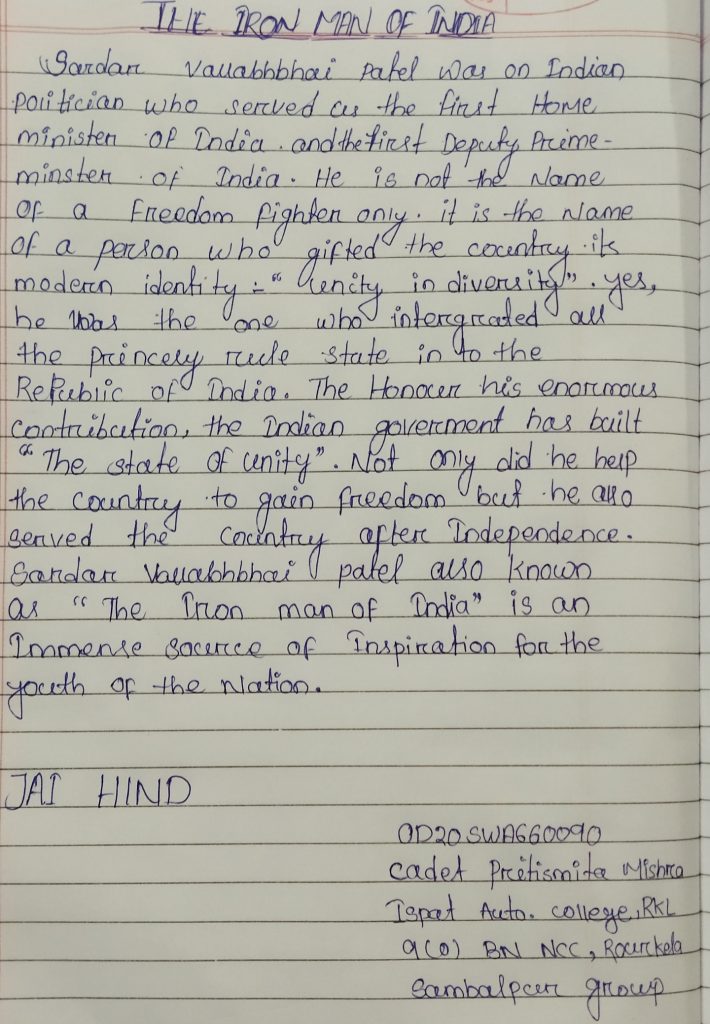 THE IRON MAN OF INDIA
Sardar Vallabhbhai Patel was on Indian
politician who served as the first Home
minister of India. and the first Deputy Prime-
minster of India. He is not the Name
of a freedom fighter only. it is the Name
of a person who gifted the country its
modern identity :- " unity in diversity". yes,
he was the one who intergrated all
the princely rule state in to the
Republic of India. The Honour his enormous
contribution, the Indian goverment has built
"The state of unity". Not only did he help
the country to gain freedom but he also
served the country after Independence.
Sardar Vallabhbhai patel also known
as "The Iron man of India" is an
Immense source of Inspiration for the
youth of the Nation.
JAI HIND
OD20SWA660090
Cadet Pritismita Mishra
Ispat Auto. college, RKL
9(O) BN NCC, Rourkela
Sambalpur group